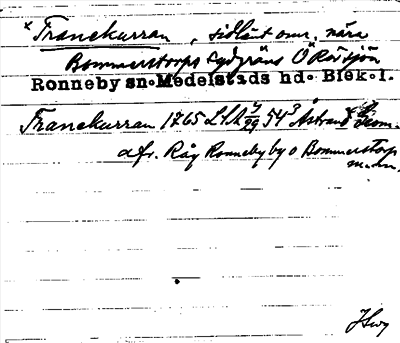 *Tranekurran, sidlänt omr. nära
Bommerstorps sydgräns O Rössjön
Ronneby sn. Medelstads hd. Blek. l.
Tranekurran 1765 LSA 54³ Åstrand Geom.
afr. Råg Ronneby by o Bommerstorp
m.m.